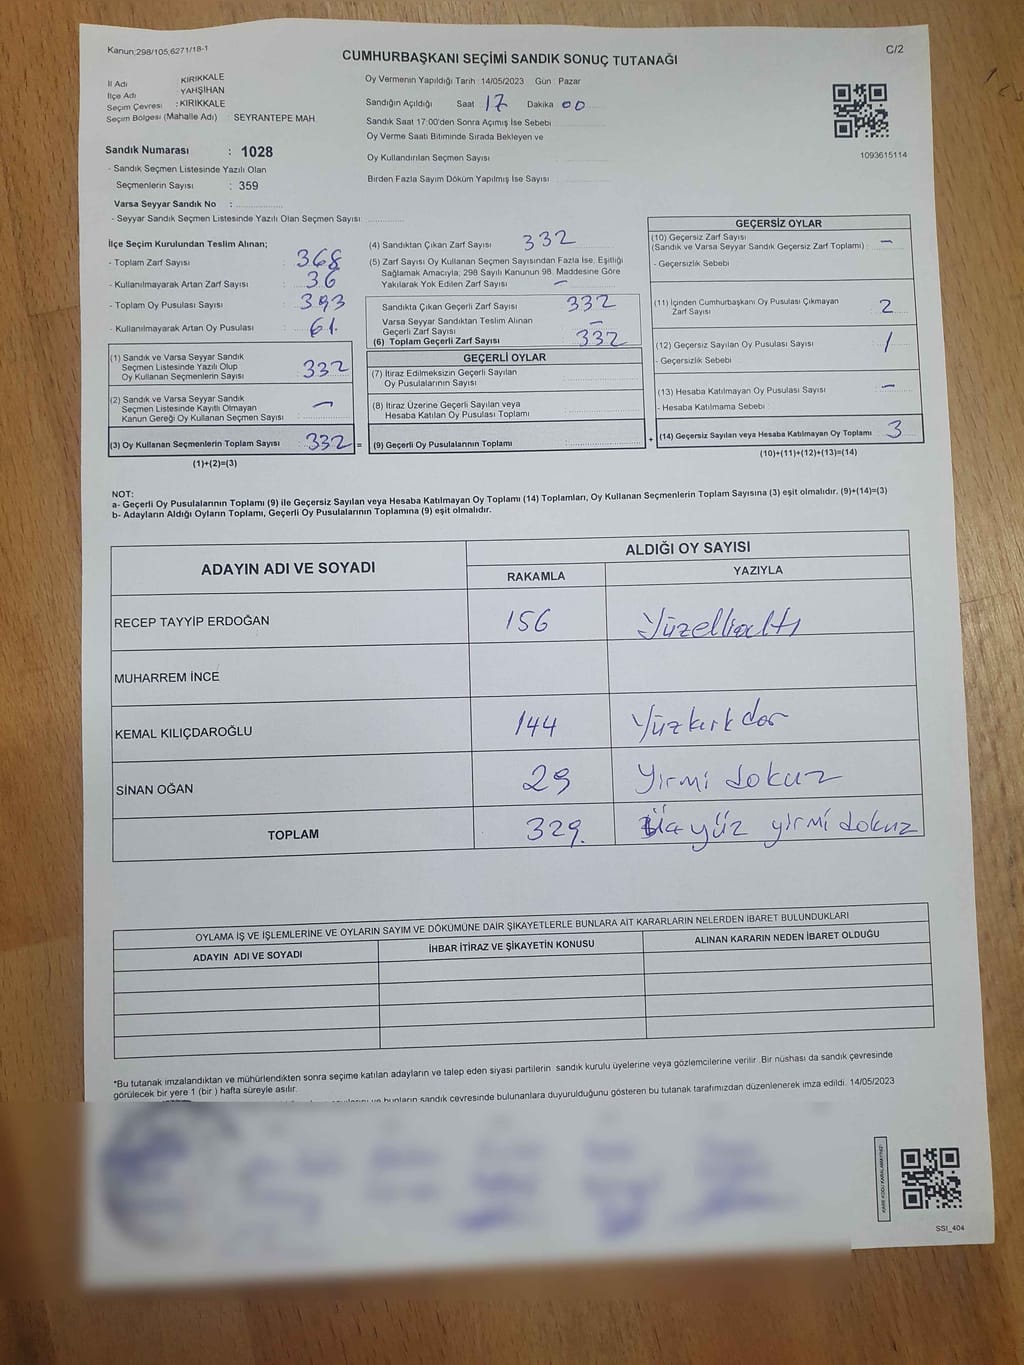 Kanun:298/105,6271/18-1
C/2
CUMHURBAŞKANI SEÇİMİ SANDIK SONUÇ TUTANAĞI
İl Adı KIRIKKALE
İlçe Adı YAHŞİHAN
Seçim Çevresi : KIRIKKALE
Seçim Bölgesi (Mahalle Adı) : SEYRANTEPE MAH.
Oy Vermenin Yapıldığı Tarih 14/05/2023 Gün : Pazar
Sandığın Açıldığı Saat 17 Dakika 00
Sandık Saat 17:00'den Sonra Açımış İse Sebebi
Oy Verme Saati Bitiminde Sırada Bekleyen ve
Oy Kullandırılan Seçmen Sayısı
Birden Fazla Sayım Döküm Yapılmış İse Sayısı
1093615114
Sandık Numarası : 1028
- Sandık Seçmen Listesinde Yazılı Olan
Seçmenlerin Sayısı : 359
Varsa Seyyar Sandık No :
- Seyyar Sandık Seçmen Listesinde Yazılı Olan Seçmen Sayısı:
İlçe Seçim Kurulundan Teslim Alınan;
- Toplam Zarf Sayısı : 368
- Kullanılmayarak Artan Zarf Sayısı : 36
- Toplam Oy Pusulası Sayısı : 393
- Kullanılmayarak Artan Oy Pusulası : 61.
(1) Sandık ve Varsa Seyyar Sandık
Seçmen Listesinde Yazılı Olup
Oy Kullanan Seçmenlerin Sayısı : 332
(2) Sandık ve Varsa Seyyar Sandık
Seçmen Listesinde Kayıtlı Olmayan
Kanun Gereği Oy Kullanan Seçmen Sayısı : —
(3) Oy Kullanan Seçmenlerin Toplam Sayısı : 332 =
(1)+(2)=(3)
(4) Sandıktan Çıkan Zarf Sayısı 332
(5) Zarf Sayısı Oy Kullanan Seçmen Sayısından Fazla İse, Eşitliği
Sağlamak Amacıyla; 298 Sayılı Kanunun 98. Maddesine Göre
Yakılarak Yok Edilen Zarf Sayısı : —
Sandıkta Çıkan Geçerli Zarf Sayısı 332
Varsa Seyyar Sandıktan Teslim Alınan
Geçerli Zarf Sayısı —
(6) Toplam Geçerli Zarf Sayısı 332
GEÇERLİ OYLAR
(7) İtiraz Edilmeksizin Geçerli Sayılan
Oy Pusulalarının Sayısı
(8) İtiraz Üzerine Geçerli Sayılan veya
Hesaba Katılan Oy Pusulası Toplamı
(9) Geçerli Oy Pusulalarının Toplamı : +
GEÇERSİZ OYLAR
(10) Geçersiz Zarf Sayısı
(Sandık ve Varsa Seyyar Sandık Geçersiz Zarf Toplamı) : —
- Geçersizlik Sebebi
(11) İçinden Cumhurbaşkanı Oy Pusulası Çıkmayan
Zarf Sayısı 2
(12) Geçersiz Sayılan Oy Pusulası Sayısı : 1
- Geçersizlik Sebebi
(13) Hesaba Katılmayan Oy Pusulası Sayısı : —
- Hesaba Katılmama Sebebi
(14) Geçersiz Sayılan veya Hesaba Katılmayan Oy Toplamı 3
(10)+(11)+(12)+(13)=(14)
NOT:
a- Geçerli Oy Pusulalarının Toplamı (9) ile Geçersiz Sayılan veya Hesaba Katılmayan Oy Toplamı (14) Toplamları, Oy Kullanan Seçmenlerin Toplam Sayısına (3) eşit olmalıdır. (9)+(14)=(3)
b- Adayların Aldığı Oyların Toplamı, Geçerli Oy Pusulalarının Toplamına (9) eşit olmalıdır.
ADAYIN ADI VE SOYADI
ALDIĞI OY SAYISI
RAKAMLA YAZIYLA
RECEP TAYYİP ERDOĞAN 156 Yüzellialtı
MUHARREM İNCE
KEMAL KILIÇDAROĞLU 144 Yüzkırk dör
SİNAN OĞAN 29 Yirmi dokuz
TOPLAM 329. Üç yüz yirmi dokuz
OYLAMA İŞ VE İŞLEMLERİNE VE OYLARIN SAYIM VE DÖKÜMÜNE DAİR ŞİKAYETLERLE BUNLARA AİT KARARLARIN NELERDEN İBARET BULUNDUKLARI
ADAYIN ADI VE SOYADI İHBAR İTİRAZ VE ŞİKAYETİN KONUSU ALINAN KARARIN NEDEN İBARET OLDUĞU
*Bu tutanak imzalandıktan ve mühürlendikten sonra seçime katılan adayların ve talep eden siyasi partilerin sandık kurulu üyelerine veya gözlemcilerine verilir .Bir nüshası da sandık çevresinde
görülecek bir yere 1 (bir ) hafta süreyle asılır.
ve bunların sandık çevresinde bulunanlara duyurulduğunu gösteren bu tutanak tarafımızdan düzenlenerek imza edildi. 14/05/2023
KARE KODU KARALAMAYINIZ!
SSI_404